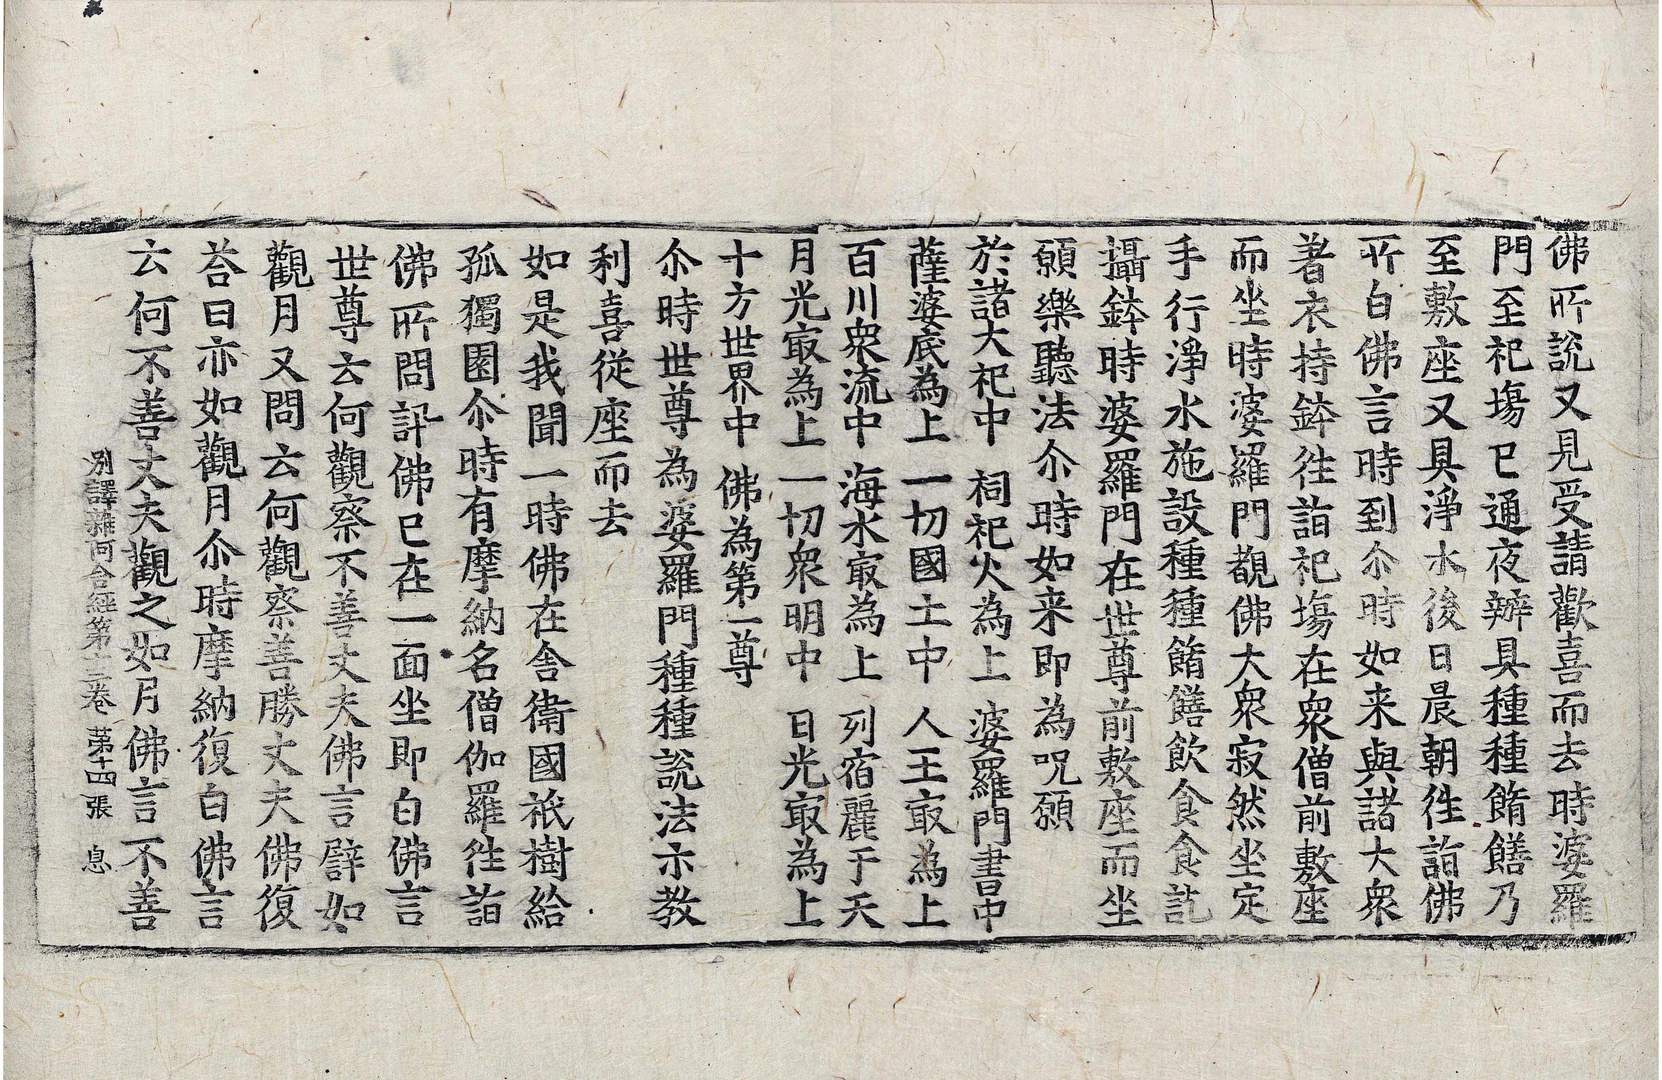 佛所說又見受請歡喜而去時婆羅
門至祀塲已通夜辦具種種餚饍乃
至敷座又具淨水後日晨朝徃詣佛
所白佛言時到尒時如来與諸大衆
著衣持鉢徃詣祀塲在衆僧前敷座
而坐時婆羅門覩佛大衆寂然坐定
手行淨水施設種種餚饍飲食食訖
攝鉢時婆羅門在世尊前敷座而坐
願樂聽法尒時如来即為呪願
於諸大祀中　祠祀火為上　婆羅門書中
薩婆底為上　一切國土中　人王㝡為上
百川衆流中　海水㝡為上　列宿麗于天
月光㝡為上　一切衆明中　日光㝡為上
十方世界中　佛為第一尊
尒時世尊為婆羅門種種說法示教
利喜從座而去
如是我聞一時佛在舍衛國祇樹給
孤獨園尒時有摩納名僧伽羅徃詣
佛所問訊佛已在一面坐即白佛言
世尊云何觀察不善丈夫佛言譬如
觀月又問云何觀察善勝丈夫佛復
荅曰亦如觀月尒時摩納復白佛言
云何不善丈夫觀之如月佛言不善
別譯雜阿含經第十三卷　第十四張　息